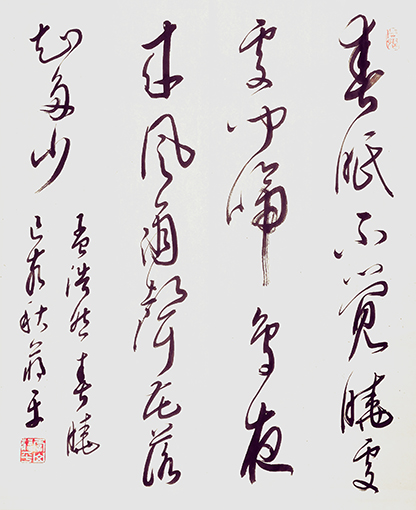 春眠不覺曉處
處聞啼鳥夜
來風雨聲花落
知多少
孟浩然春曉
己亥秋蔣平